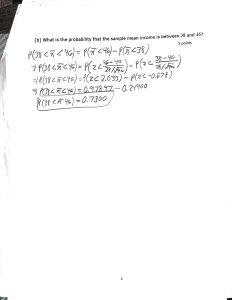 (b) What is the probability that the sample mean income is between 38 and 46?
5 points
P(38 < x̄ < 46) = P(x̄ < 46) - P(x̄ < 38)
⇒ P(38 < x̄ < 46) = P(z < 46-40 / ) - P(z < 38-40 / )
⇒ P(38 < x̄ < 46) = P(z < 2.033) - P(z < -0.678)
⇒ P(38 < x̄ < 46) = 0.97897 - 0.24900
P(38 < x̄ < 46) = 0.7300